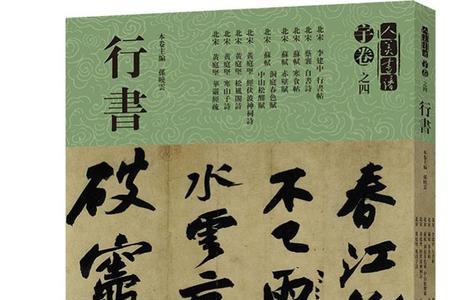 人美書譜
羊卷之四
北宋 李建中 行書帖
北宋 蔡襄 自書詩
北宋 蘇軾 寒食帖
北宋 蘇軾 赤壁賦
北宋 蘇軾 洞庭春色賦
中山松醪賦
北宋 黄庭堅 經伏波神祠詩
北宋 黄庭堅 松風閣詩
北宋 黄庭堅 寒山子詩
北宋 黄庭堅 華嚴經疏
本卷主編 孫曉雲
行書
春江
不已雨
水雲
破竈
人美書譜
羊卷
之四
行書
本卷主編 孫曉雲